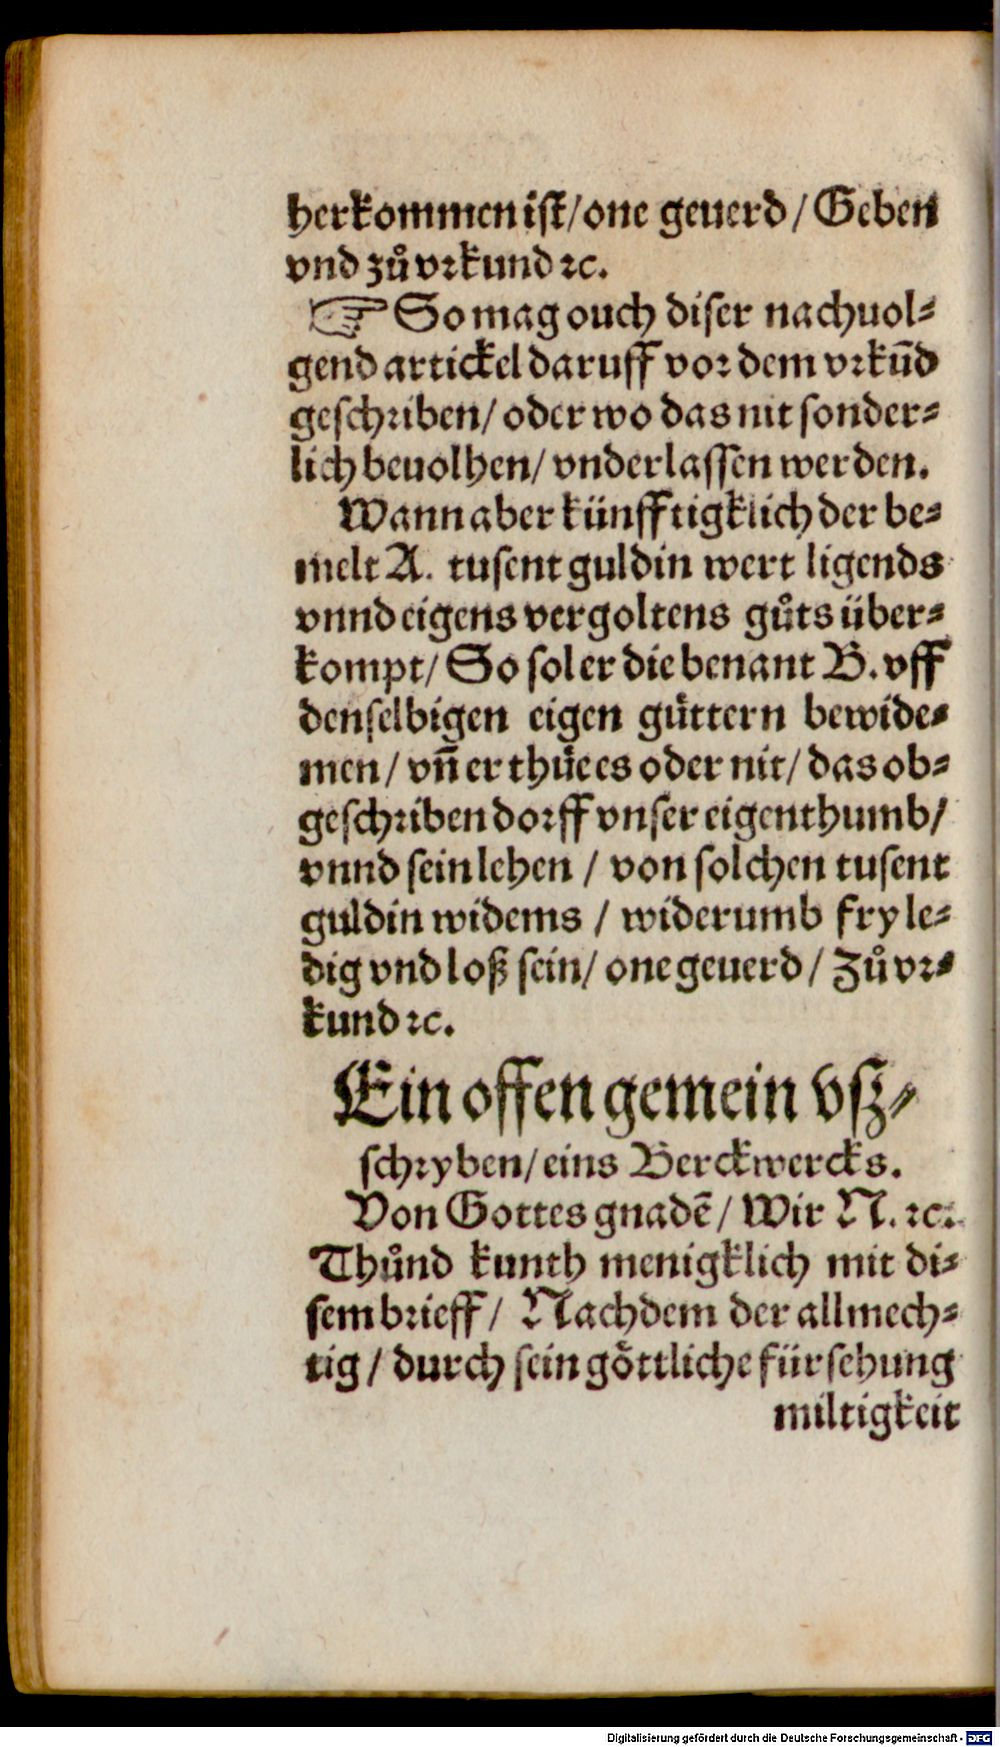 herkommen ist/ one geuerd / Geben
vnd zů vꝛkund ꝛc.
☞ So mag ouch diser nachuol⸗
gend artickel daruff voꝛ dem vꝛkūd
geschꝛiben/ oder wo das nit sonder⸗
lich beuolhen/ vnderlassen werden.
Wann aber künfftigklich der be⸗
melt A. tusent guldin wert ligends
vnnd eigens vergoltens gůts über⸗
kompt/ So sol er die benant B. vff
denselbigen eigen güttern bewide⸗
men/ vn̄ er thüe es oder nit/ das ob⸗
geschꝛiben doꝛff vnser eigenthumb/
vnnd sein lehen / von solchen tusent
guldin widems / widerumb fry le⸗
dig vnd loß sein/ one geuerd / Zů vꝛ⸗
kund ꝛc.
Ein offen gemein vsz⸗
schꝛyben/ eins Berckwercks.
Von Gottes gnadē/ Wir N. ꝛc.
Thůnd kunth menigklich mit di⸗
sem bꝛieff/ Nachdem der allmech⸗
tig / durch sein göttliche fürsehung
miltigkeit
Digitalisierung gefördert durch die Deutsche Forschungsgemeinschaft - DFG